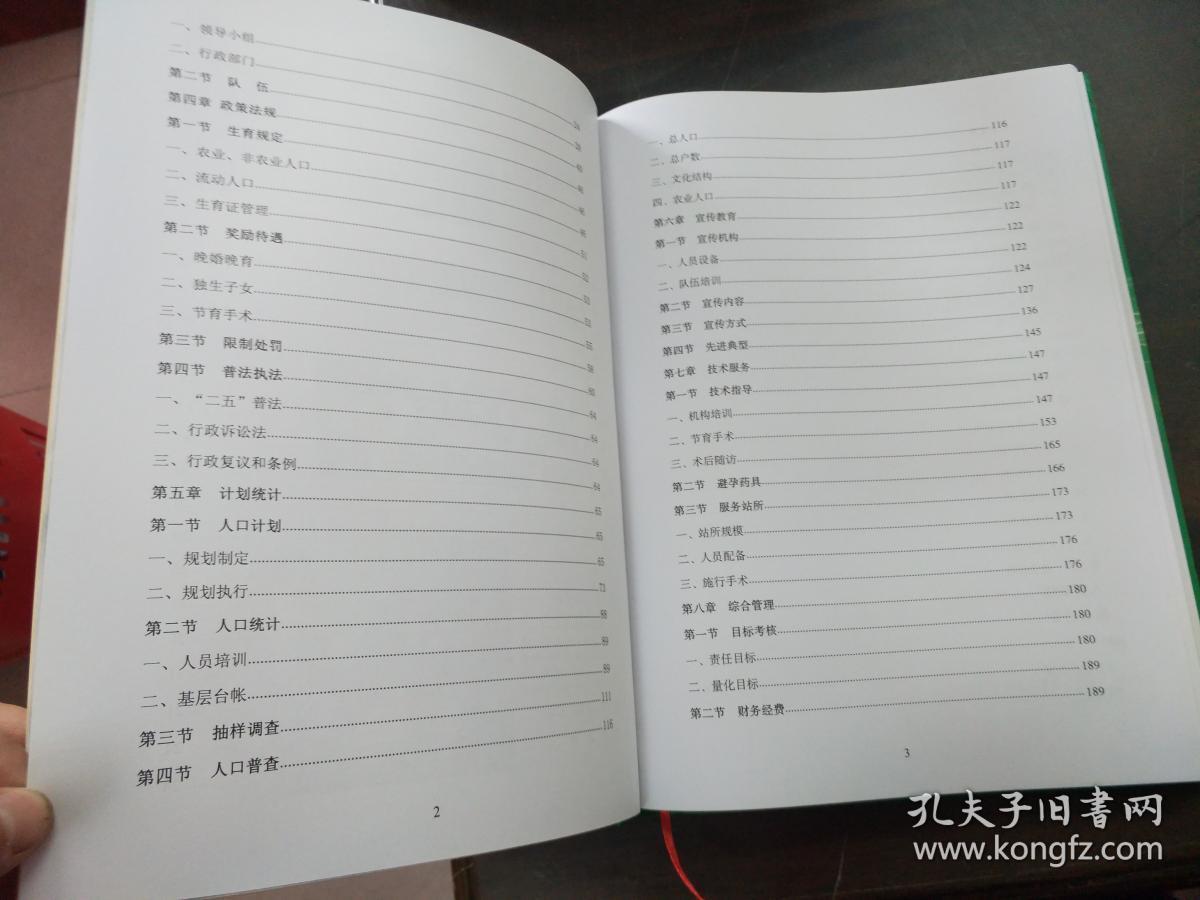 一、领导小组
二、行政部门
第二节 队 伍
第四章 政策法规
第一节 生育规定
一、农业、非农业人口
二、流动人口
三、生育证管理
第二节 奖励待遇
一、晚婚晚育
二、独生子女
三、节育手术
第三节 限制处罚
第四节 普法执法
一、“二五”普法
二、行政诉讼法
三、行政复议和条例
第五章 计划统计
第一节 人口计划
一、规划制定
二、规划执行
第二节 人口统计
一、人员培训 89
二、基层台帐 89
第三节 抽样调查 111
第四节 人口普查 116
2
一、总人口 116
二、总户数 117
三、文化结构 117
四、农业人口 117
第六章 宣传教育 122
第一节 宣传机构 122
一、人员设备 122
二、队伍培训 124
第二节 宣传内容 127
第三节 宣传方式 136
第四节 先进典型 145
第七章 技术服务 147
第一节 技术指导 147
一、机构培训 147
二、节育手术 153
三、术后随访 165
第二节 避孕药具 166
第三节 服务站所 173
一、站所规模 173
二、人员配备 176
三、施行手术 176
第八章 综合管理 180
第一节 目标考核 180
一、责任目标 180
二、量化目标 189
第二节 财务经费 189
3
孔夫子旧书网
www.kongfz.com